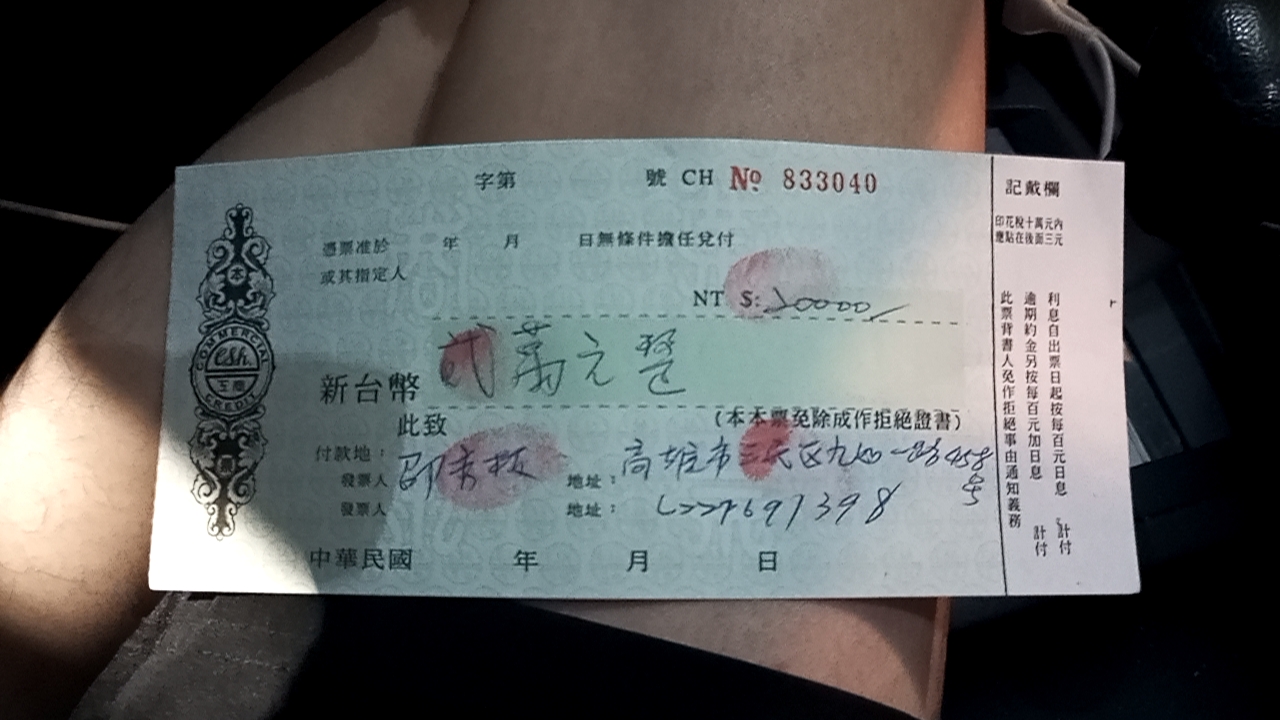 字第 號 CH No 833040
憑票准於 年 月 日無條件擔任兌付
或其指定人
NT $: 20000/
新台幣 貳萬元整
此致 (本本票免除成作拒絕證書)
付款地:
發票人 邱 地址: 高雄市三民区九如一路458号
發票人 地址: L227691398
中華民國 年 月 日
本
COMMERCIAL
CSh.
工商
CREDIT
票
記載欄
印花稅十萬元內
應貼在後面三元
利息自出票日起按每百元日息 計付
逾期約金另按每百元加日息 計付
此票背書人免作拒絕事由通知義務